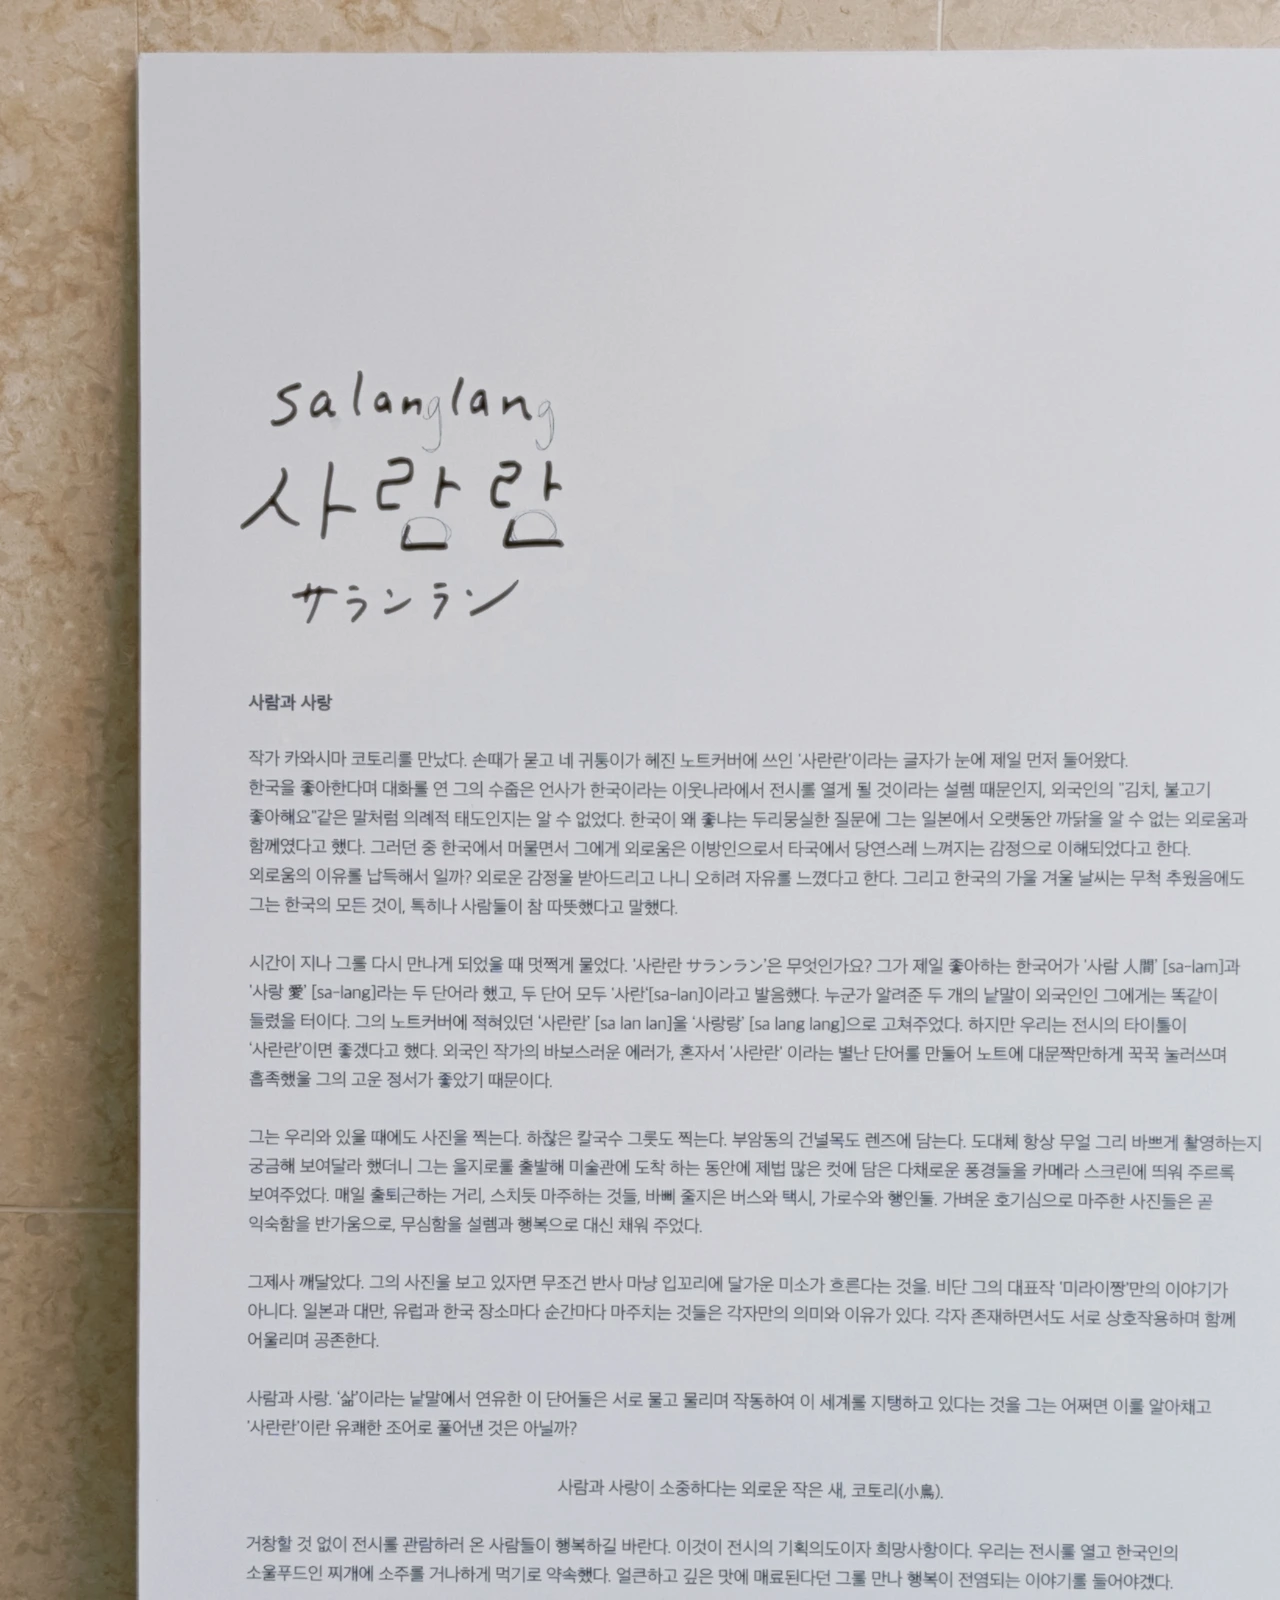 salanglang
사랑랑
サランラン
사람과 사랑
작가 카와시마 코토리를 만났다. 손때가 묻고 네 귀퉁이가 헤진 노트커버에 쓰인 '사란란'이라는 글자가 눈에 제일 먼저 들어왔다.
한국을 좋아한다며 대화를 연 그의 수줍은 언사가 한국이라는 이웃나라에서 전시를 열게 될 것이라는 설렘 때문인지, 외국인의 "김치, 불고기
좋아해요"같은 말처럼 의례적 태도인지는 알 수 없었다. 한국이 왜 좋냐는 두리뭉실한 질문에 그는 일본에서 오랫동안 까닭을 알 수 없는 외로움과
함께였다고 했다. 그러던 중 한국에서 머물면서 그에게 외로움은 이방인으로서 타국에서 당연스레 느껴지는 감정으로 이해되었다고 한다.
외로움의 이유를 납득해서 일까? 외로운 감정을 받아드리고 나니 오히려 자유를 느꼈다고 한다. 그리고 한국의 가을 겨울 날씨는 무척 추웠음에도
그는 한국의 모든 것이, 특히나 사람들이 참 따뜻했다고 말했다.
시간이 지나 그를 다시 만나게 되었을 때 멋쩍게 물었다. '사란란 サランラン'은 무엇인가요? 그가 제일 좋아하는 한국어가 '사람 人間' [sa-lam]과
'사랑 愛' [sa-lang]라는 두 단어라 했고, 두 단어 모두 '사란'[sa-lan]이라고 발음했다. 누군가 알려준 두 개의 낱말이 외국인인 그에게는 똑같이
들렸을 터이다. 그의 노트커버에 적혀있던 '사란란' [sa lan lan]을 '사랑랑' [sa lang lang]으로 고쳐주었다. 하지만 우리는 전시의 타이틀이
'사란란'이면 좋겠다고 했다. 외국인 작가의 바보스러운 에러가, 혼자서 '사란란' 이라는 별난 단어를 만들어 노트에 대문짝만하게 꾹꾹 눌러쓰며
흡족했을 그의 고운 정서가 좋았기 때문이다.
그는 우리와 있을 때에도 사진을 찍는다. 하찮은 칼국수 그릇도 찍는다. 부암동의 건널목도 렌즈에 담는다. 도대체 항상 무얼 그리 바쁘게 촬영하는지
궁금해 보여달라 했더니 그는 을지로를 출발해 미술관에 도착 하는 동안에 제법 많은 컷에 담은 다채로운 풍경들을 카메라 스크린에 띄워 주르륵
보여주었다. 매일 출퇴근하는 거리, 스치듯 마주하는 것들, 바삐 줄지은 버스와 택시, 가로수와 행인들. 가벼운 호기심으로 마주한 사진들은 곧
익숙함을 반가움으로, 무심함을 설렘과 행복으로 대신 채워 주었다.
그제사 깨달았다. 그의 사진을 보고 있자면 무조건 반사 마냥 입꼬리에 달가운 미소가 흐른다는 것을. 비단 그의 대표작 '미라이짱'만의 이야기가
아니다. 일본과 대만, 유럽과 한국 장소마다 순간마다 마주치는 것들은 각자만의 의미와 이유가 있다. 각자 존재하면서도 서로 상호작용하며 함께
어울리며 공존한다.
사람과 사랑. '삶'이라는 낱말에서 연유한 이 단어들은 서로 물고 물리며 작동하여 이 세계를 지탱하고 있다는 것을 그는 어쩌면 이를 알아채고
'사란란'이란 유쾌한 조어로 풀어낸 것은 아닐까?
사람과 사랑이 소중하다는 외로운 작은 새, 코토리(小鳥).
거창할 것 없이 전시를 관람하러 온 사람들이 행복하길 바란다. 이것이 전시의 기획의도이자 희망사항이다. 우리는 전시를 열고 한국인의
소울푸드인 찌개에 소주를 거나하게 먹기로 약속했다. 얼큰하고 깊은 맛에 매료된다던 그를 만나 행복이 전염되는 이야기를 들어야겠다.